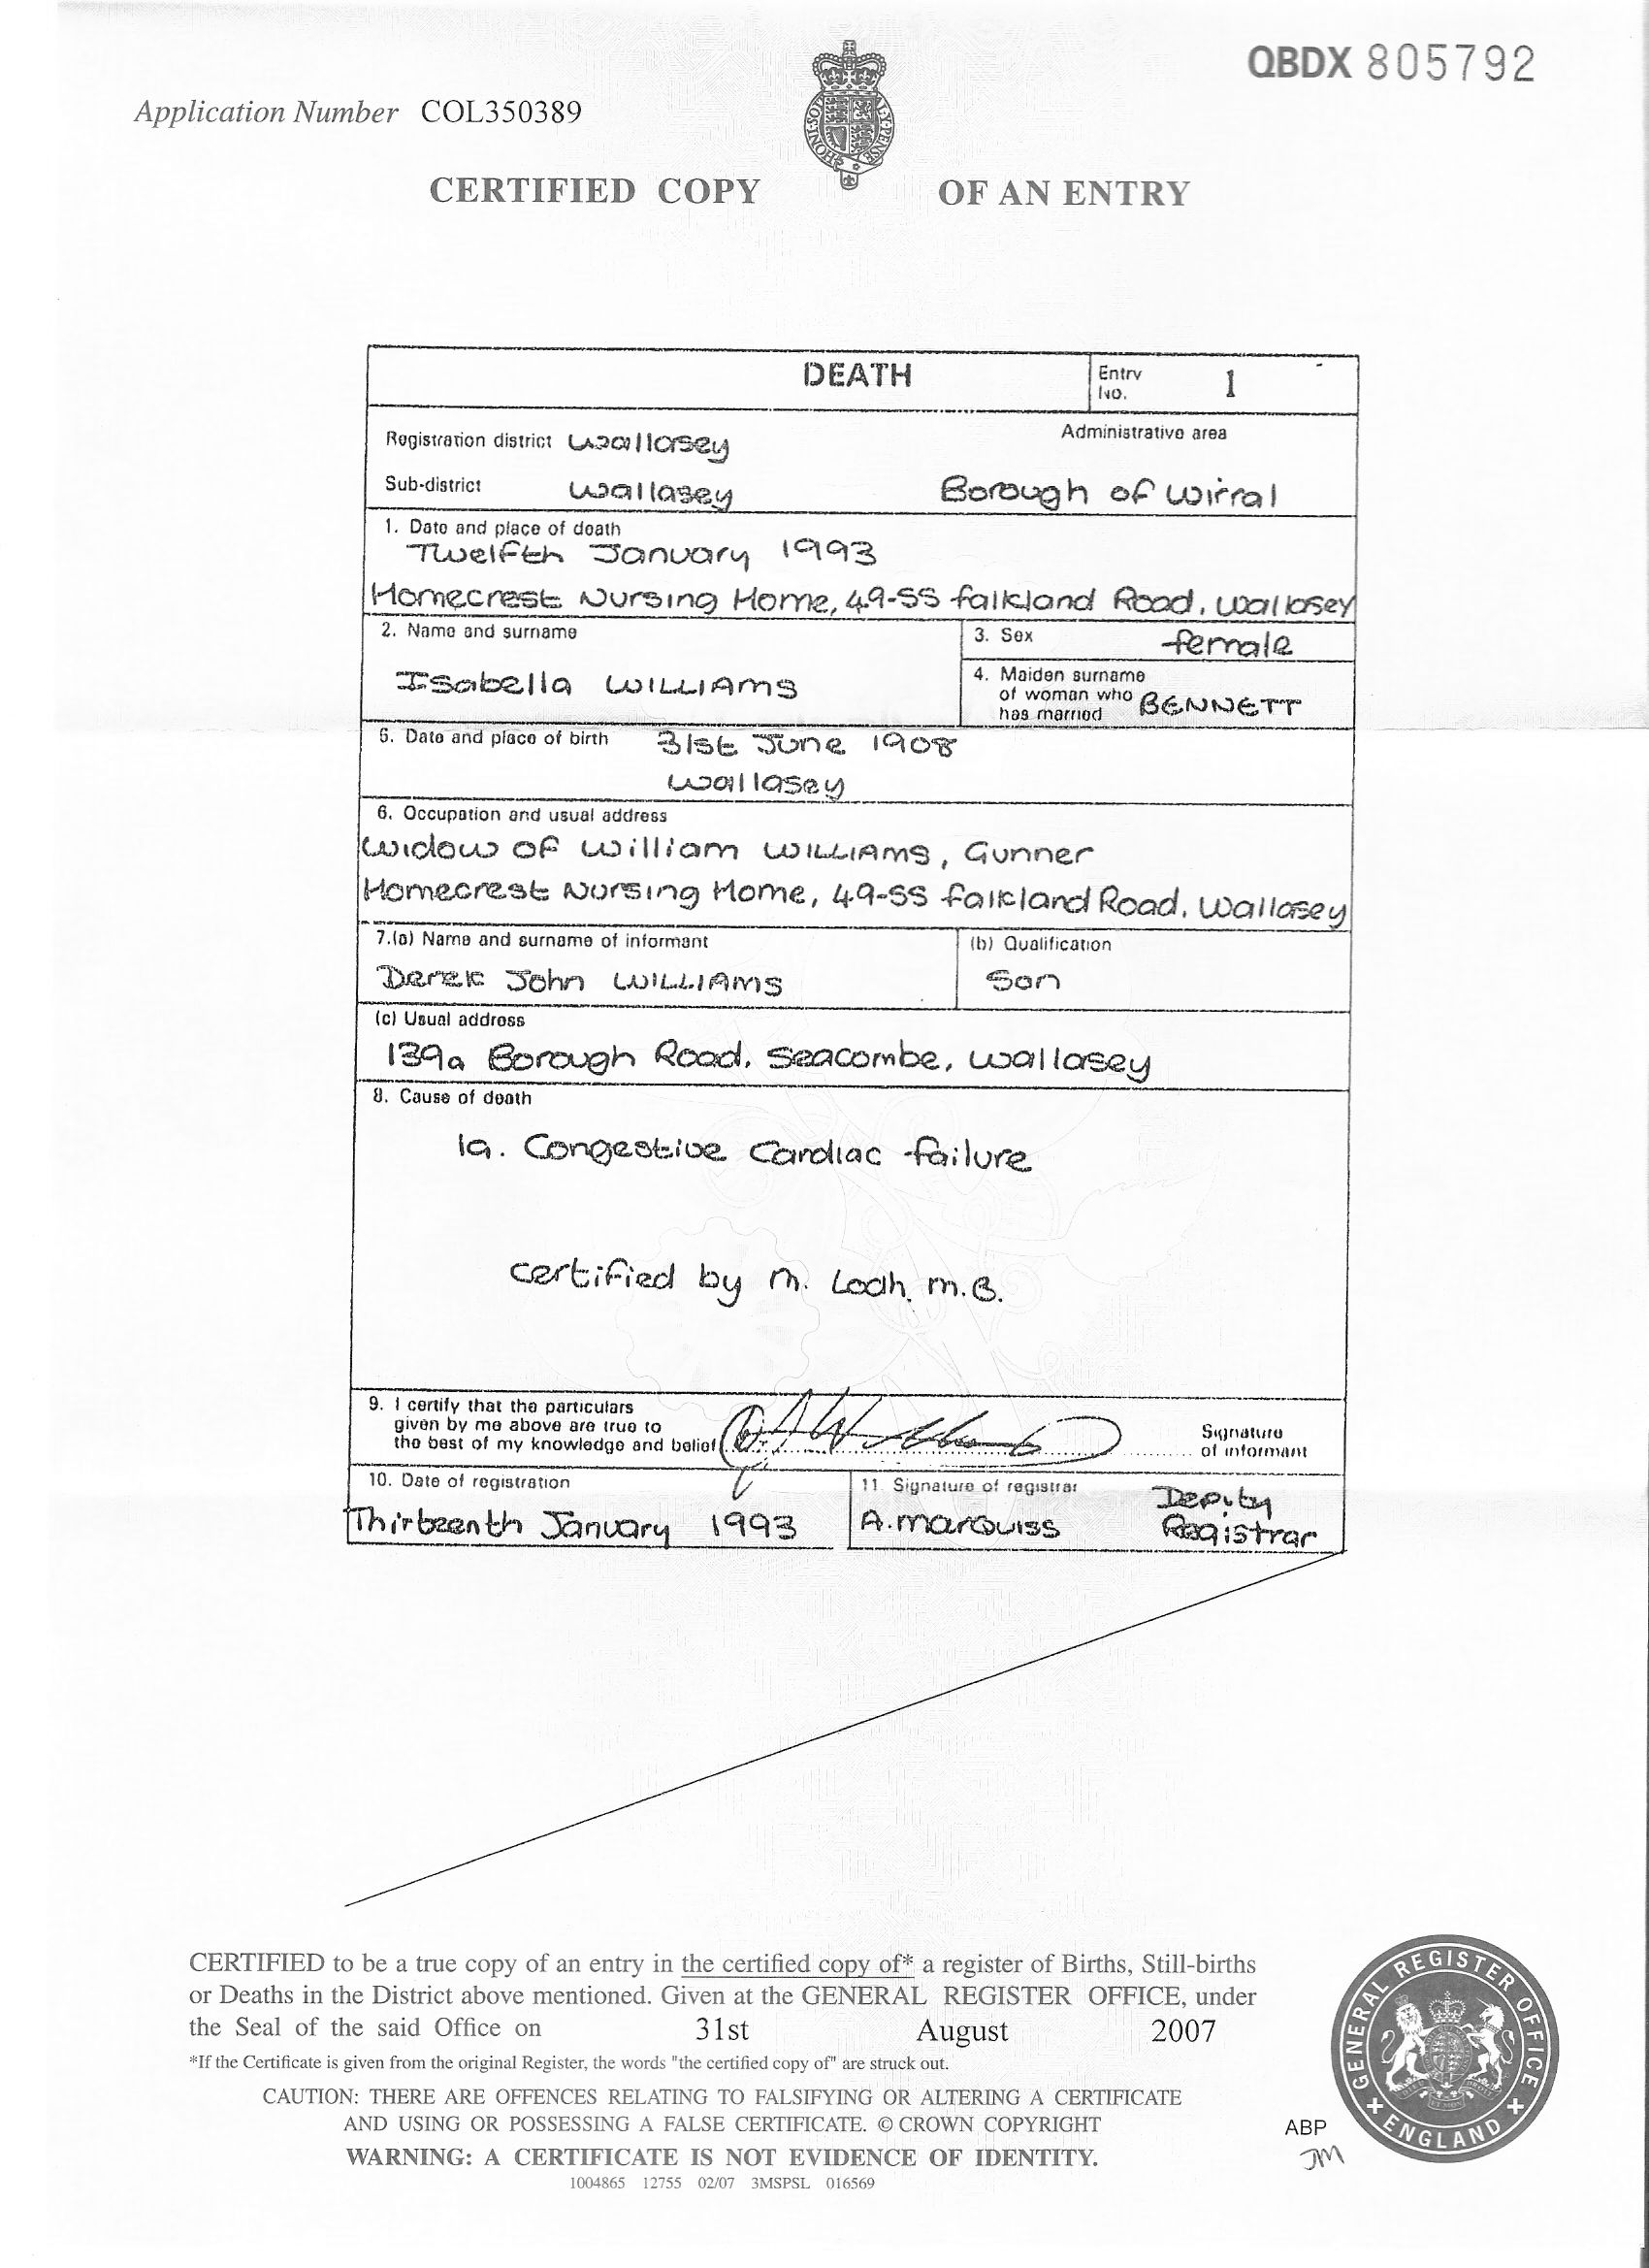 QBDX 805792
Application Number COL350389
CERTIFIED COPY OF AN ENTRY
DEATH
Entry No. 1
Registration district Wallasey
Administrative area
Sub-district Wallasey
Borough of Wirral
1. Date and place of death
Twelfth January 1993
Homecrest Nursing Home, 49-55 Falkland Road, Wallasey
2. Name and surname
Isabella WILLIAMS
3. Sex female
4. Maiden surname
of woman who
has married BENNETT
5. Date and place of birth 31st June 1908
Wallasey
6. Occupation and usual address
Widow of William WILLIAMS, Gunner
Homecrest Nursing Home, 49-55 Falkland Road, Wallasey
7.(a) Name and surname of informant
Derek John WILLIAMS
(b) Qualification
Son
(c) Usual address
139a Borough Road, Seacombe, Wallasey
8. Cause of death
1a. Congestive Cardiac failure
Certified by M. Lodh. M.B.
9. I certify that the particulars
given by me above are true to
the best of my knowledge and belief
Signature
of informant
10. Date of registration
Thirteenth January 1993
11. Signature of registrar
A. Marquiss
Deputy
Registrar
CERTIFIED to be a true copy of an entry in the certified copy of* a register of Births, Still-births
or Deaths in the District above mentioned. Given at the GENERAL REGISTER OFFICE, under
the Seal of the said Office on 31st August 2007
*If the Certificate is given from the original Register, the words "the certified copy of" are struck out.
CAUTION: THERE ARE OFFENCES RELATING TO FALSIFYING OR ALTERING A CERTIFICATE
AND USING OR POSSESSING A FALSE CERTIFICATE. © CROWN COPYRIGHT
WARNING: A CERTIFICATE IS NOT EVIDENCE OF IDENTITY.
1004865 12755 02/07 3MSPSL 016569
ABP
JM
GENERAL REGISTER OFFICE
+ ENGLAND +